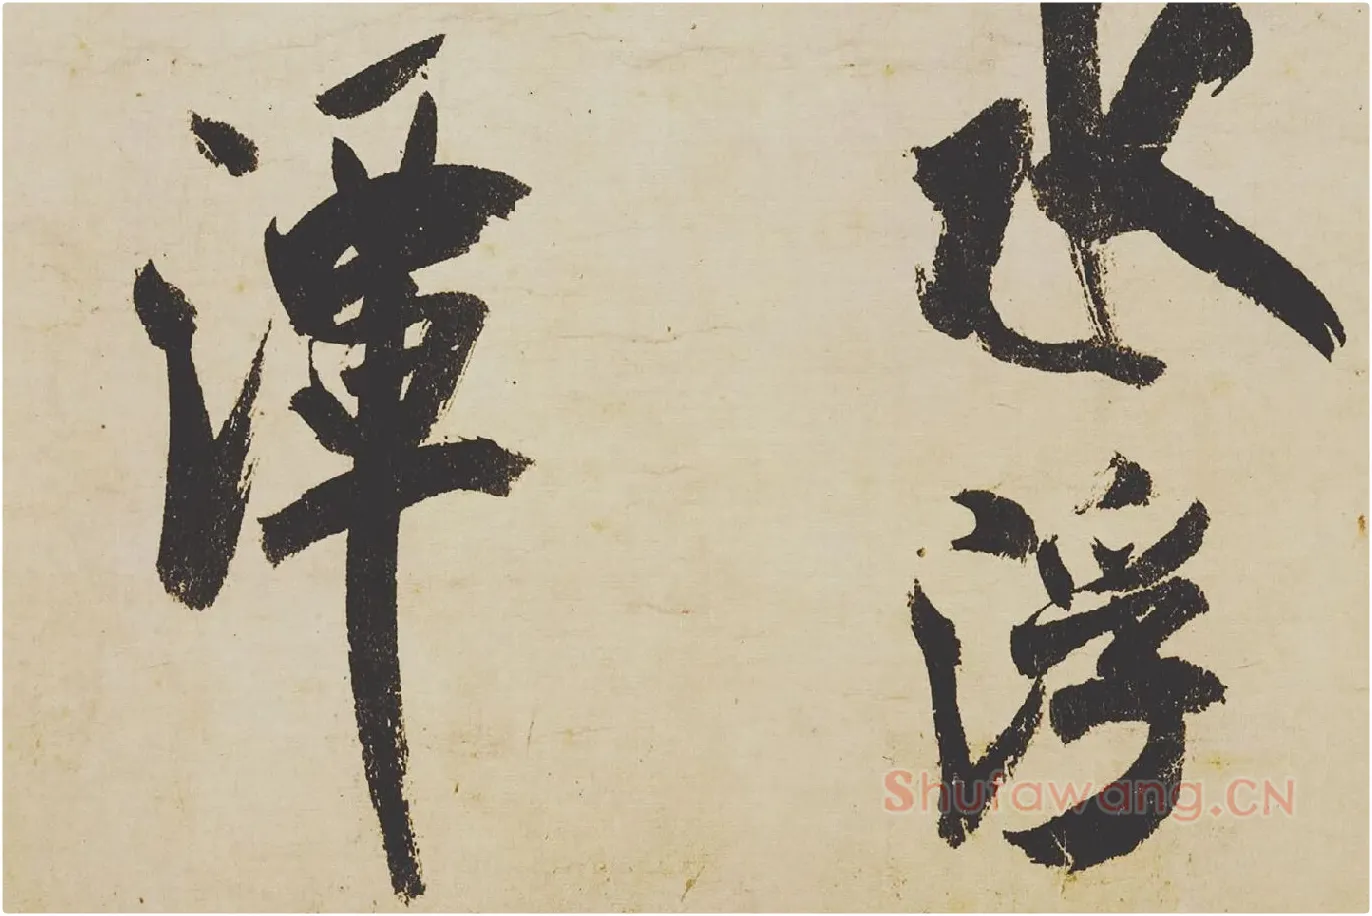 浮
潭
Shufawang.CN